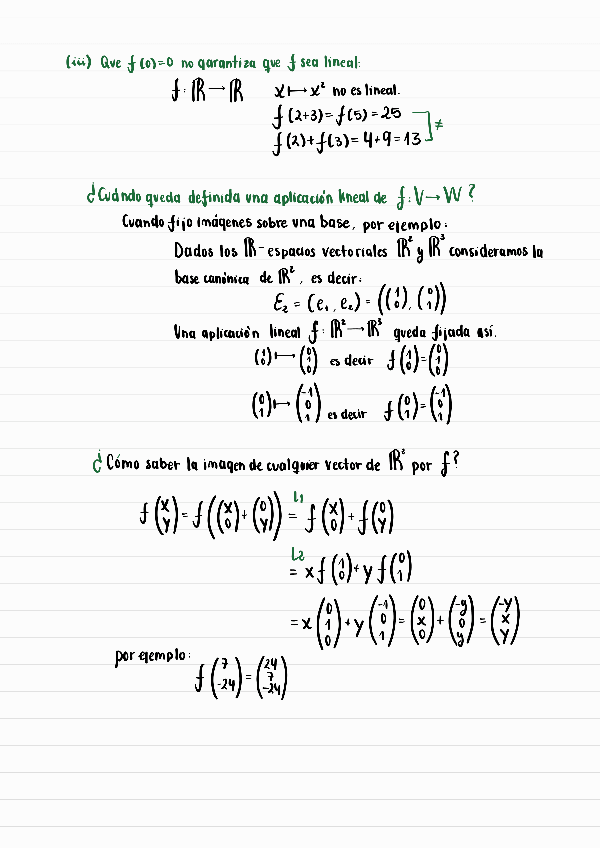 (iii) Que f(0)=0 no garantiza que f sea lineal:
f: ℝ → ℝ   x ↦ x² no es lineal.
f(2+3) = f(5) = 25
f(2) + f(3) = 4+9 = 13 ] ≠
¿Cuándo queda definida una aplicación lineal de f: V → W?
Cuando fijo imágenes sobre una base, por ejemplo:
Dados los ℝ-espacios vectoriales ℝ² y ℝ³ consideramos la
base canónica de ℝ², es decir:
ℰ₂ = (e₁, e₂) = ((1 0), (0 1))
Una aplicación lineal f: ℝ² → ℝ³ queda fijada así.
(1 0) ↦ (0 1 0) es decir f(1 0) = (0 1 0)
(0 1) ↦ (-1 0 1) es decir f(0 1) = (-1 0 1)
¿Cómo saber la imagen de cualquier vector de ℝ² por f?
f(x y) = f((x 0) + (0 y)) =^{L1} f(x 0) + f(0 y)
=^{L2} x f(1 0) + y f(0 1)
= x (0 1 0) + y (-1 0 1) = (0 x 0) + (-y 0 y) = (-y x y)
por ejemplo:
f(7 -24) = (24 7 -24)